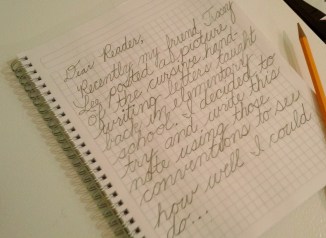 Dear Reader,
Recently my friend
Lee posted a picture
of the cursive hand-
writing letters taught
back in elementary
school. I decided to
try and write this
note using those
conventions to see
how well I could
do...